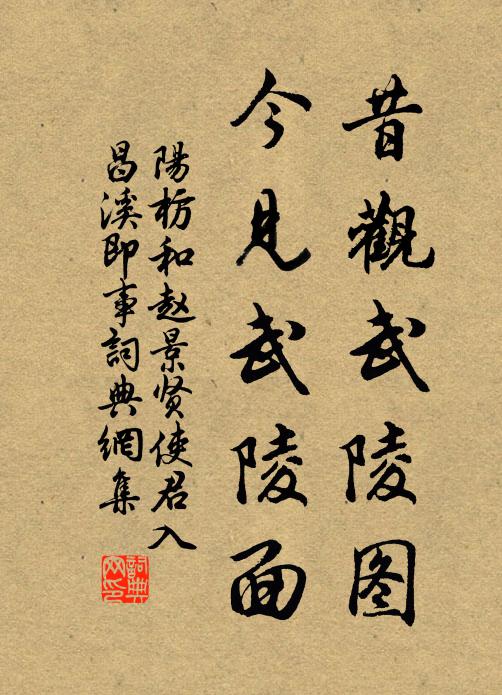 昔觀武陵图
今見武陵面
陽枋和赵景贤使君入
昌溪即事詞典網集
詞典网印